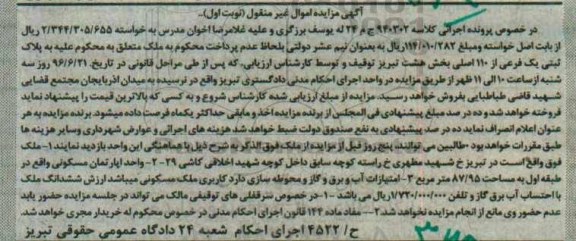 آگهی مزایده اموال غیر منقول (نوبت اول)..
در خصوص پرونده اجرائی کلاسه ۹۴۰۳۰۲ ج م ۲۴ له یوسف برزگری و علیه غلامرضا اخوان مدرس به خواسته ۲/۳۴۴/۳۰۵/۶۵۵ ریال
از بابت اصل خواسته ومبلغ ۱۱۴/۰۱۰/۲۸۲ریال به بعنوان نیم عشر دولتی بلحاظ عدم پرداخت محکوم به ملک متعلق به محکوم علیه به پلاک
ثبتی یک فرعی از ۱۱۰ اصلی بخش هشت تبریز توقیف و توسط کارشناس ارزیابی، که پس از طی مراحل قانونی در تاریخ. ۹۶/۶/۲۱ روز سه
شنبه از ساعت ۱۰ الی ۱۱ ظهر از طریق مزایده در واحد اجرای احکام مدنی دادگستری تبریز واقع در نرسیده به میدان اذربایجان مجتمع قضایی
شهید قاضی طباطبایی بفروش خواهد رسید. مزایده از مبلغ ارزیابی شده کارشناس شروع و به کسی که بالاترین قیمت را پیشنهاد نماید
فروخته خواهد شد و ده در صد مبلغ پیشنهادی فی المجلس از برنده مزایده اخذ و مابقی حداکثر یکماه فرصت داده میشود. برنده مزایده به هر
عنوان اعلام انصراف نماید ده در صد پیشنهادی به نفع صندوق دولت ضبط خواهد شد هزینه های اجرائی و عوارض شهرداری وسایر هزینه ها
طبق مقررات خواهد بود -طالبین می توانند، پنج روز قبل از مزایده از ملک فوق الذکر به شرح ذیل با هماهنگی این واحد بازدید نمایند ۱- ملک
فوق واقع است در تبریز خ شهید مطهری خ راسته کوچه سابق داخل کوچه شهید اخلاقی کاشی ۲۹-۲- واحد اپارتمان مسکونی واقع در
طبقه اول به مساحت ۸۷/۹۵ متر مربع ۳- امتیازات آب و برق و گاز و محوطه سازی دارد کاربری ملک مسکونی میباشد ارزش ششدانگ ملک
با احتساب آب برق گاز و تلفن ۱/۷۳۰/۰۰۰/۰۰۰ریال می باشد -۱-در خصوص سرقفلی های توقیفی مالک می تواند در جلسه مزایده حضور یابد
عدم حضور وی مانع از انجام مزایده نخواهد شد.۲- مفاد ماده ۱۴۴ قانون اجرای احکام مدنی در خصوص محکوم له خریدار مجری خواهد شد.
ح/ ۴۵۲۲ اجرای احکام شعبه ۲۴ دادگاه عمومی حقوقی تبریز